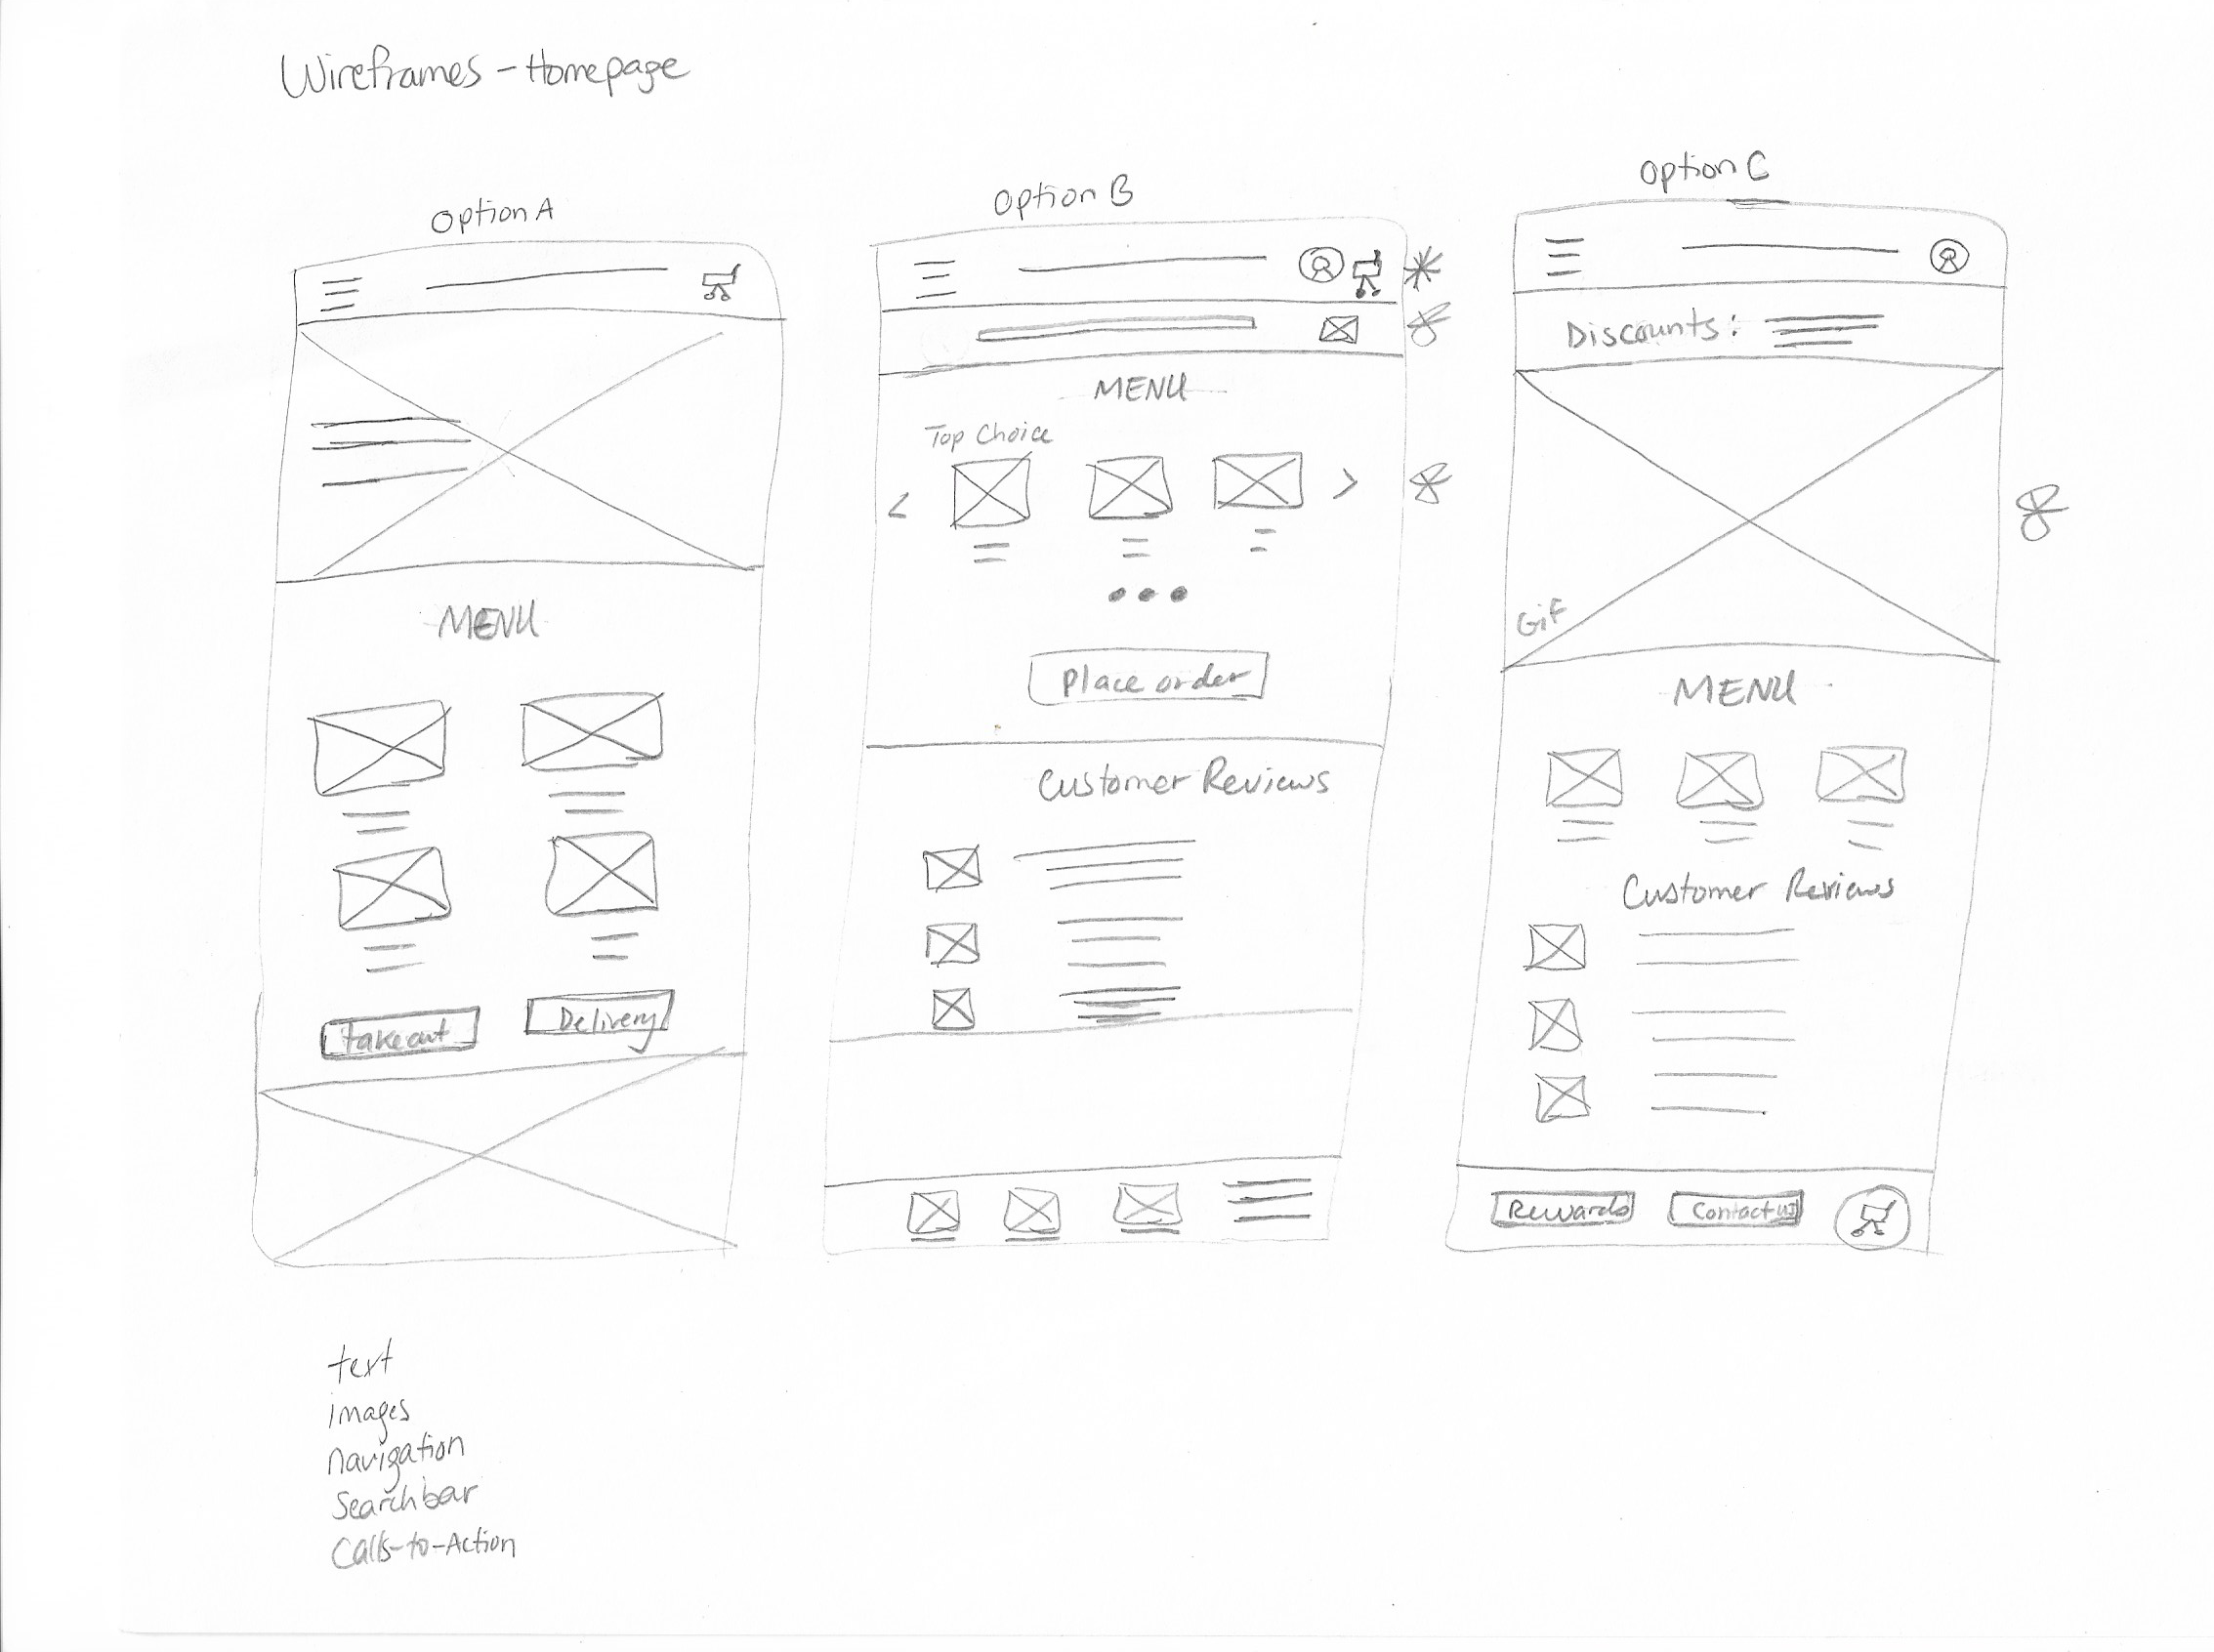 Wireframes - Homepage
Option A
MENU
Takeout
Delivery
Option B
MENU
Top Choice
Place order
Customer Reviews
Option C
Discounts:
Gif
MENU
Customer Reviews
Rewards
Contact us
text
images
navigation
Searchbar
Calls-to-Action